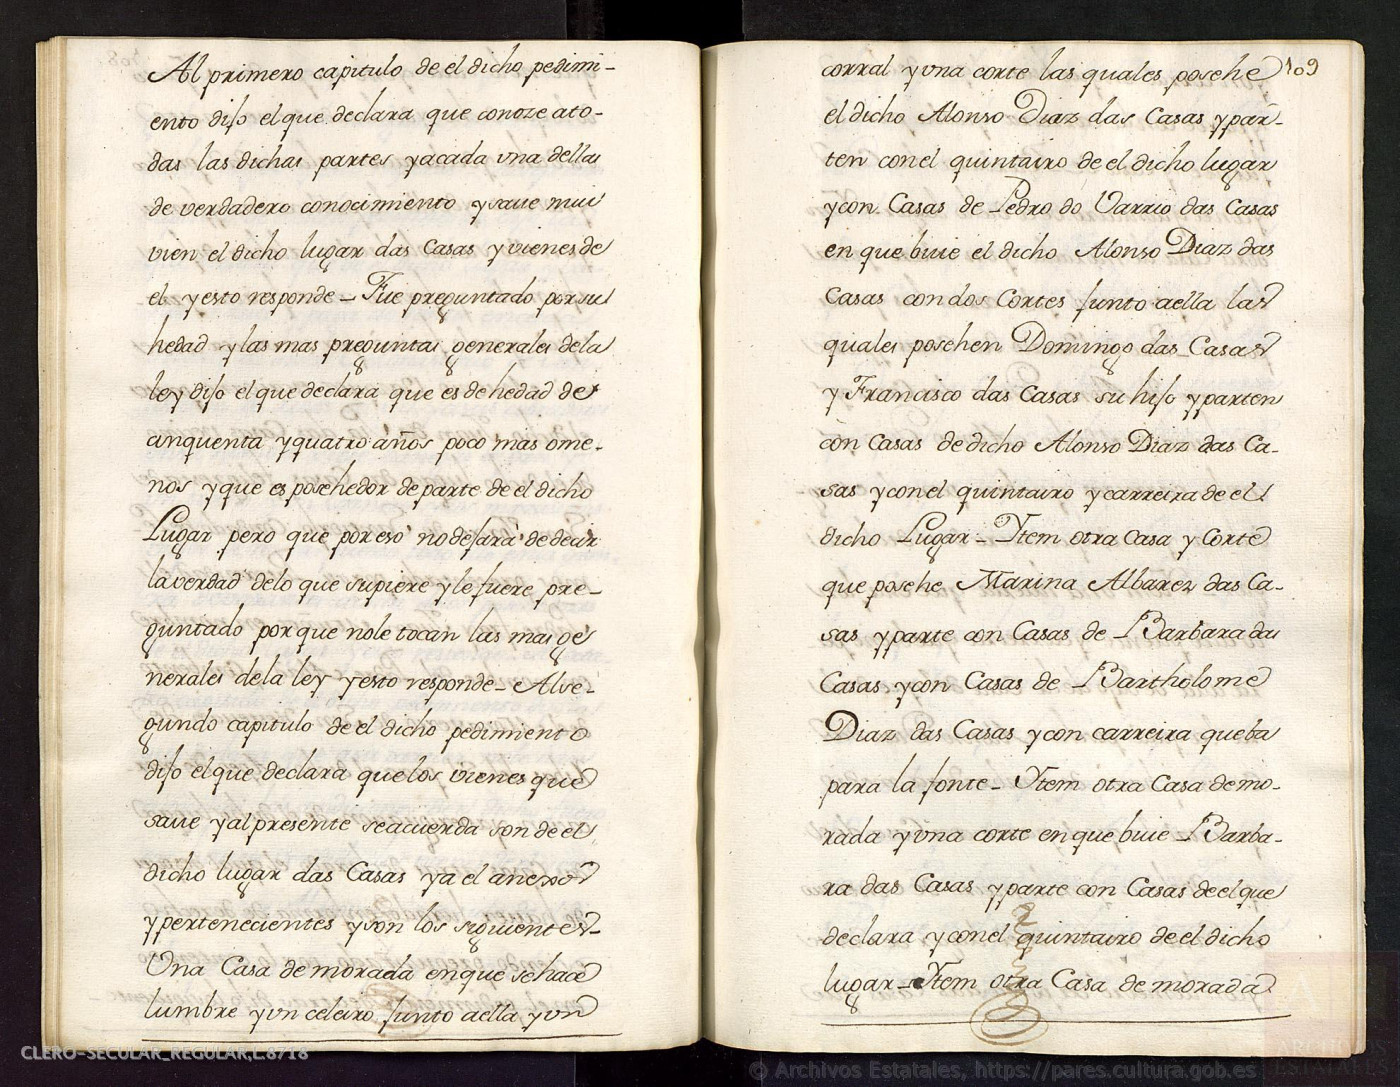 Al primero capitulo de el dicho pedimi-
ento dijo el que declara que conoze ato-
das las dichas partes yacada vna dellas
de verdadero conocimiento ysaue mui
vien el dicho lugar das Casas yvienes de
el yesto responde - Fue preguntado por su
hedad ylas mas preguntas generales dela
ley dijo el que declara que es de hedad de
cinquenta yquatro años poco mas ome-
nos yque es posehedor de parte de el dicho
Lugar pero que por eso no dejara de decir
la verdad delo que supiere yle fuere pre-
guntado por que nole tocan las mas ge
nerales dela ley yesto responde - Al se-
gundo capitulo de el dicho pedimiento
dijo el que declara que los vienes que
saue yal presente se acuerda son de el
dicho lugar das Casas ya el anexos
ypertenecientes yson los siguientes -
Una Casa de morada en que se hace
lumbre yvn celeiro junto aella yvn
109
corral yvna corte las quales posehe
el dicho Alonso Diaz das Casas ypar-
ten con el quintairo de el dicho lugar
ycon Casas de Pedro do Varrio das Casas
en que biuie el dicho Alonso Diaz das
Casas con dos Cortes junto aella las
quales posehen Domingo das Casas
y Francisco das Casas su hijo yparten
con Casas de dicho Alonso Diaz das Ca-
sas ycon el quintairo ycarreira de el
dicho Lugar - Ytem otra Casa y Corte
que posehe Marina Albarez das Ca-
sas yparte con Casas de Barbara das
Casas ycon Casas de Bartholome
Diaz das Casas ycon carreira que ba
para la fonte - Ytem otra Casa de mo-
rada yvna corte en que biuie Barba-
ra das Casas yparte con Casas de el que
declara ycon el quintairo de el dicho
lugar - Ytem otra Casa de morada
CLERO-SECULAR_REGULAR,L.8718
© Archivos Estatales, https://pares.cultura.gob.es
ARCHIVOS
ESTATALES